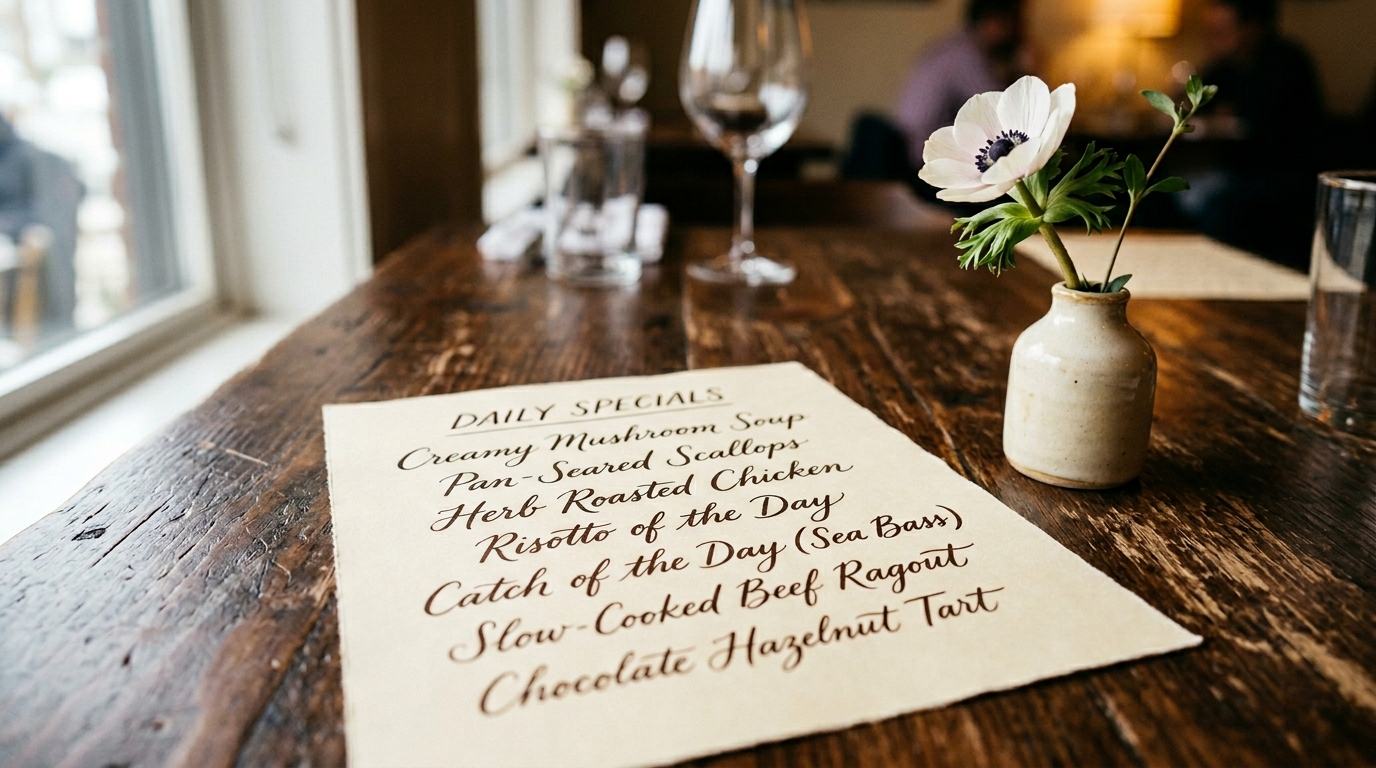 DAILY SPECIALS
Creamy Mushroom Soup
Pan-Seared Scallops
Herb Roasted Chicken
Risotto of the Day
Catch of the Day (Sea Bass)
Slow-Cooked Beef Ragout
Chocolate Hazelnut Tart